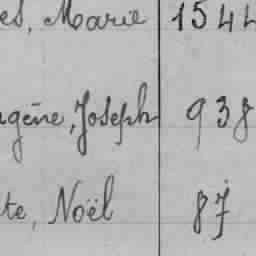 es, Marie 1544
gène, Joseph 938
te, Noël 87